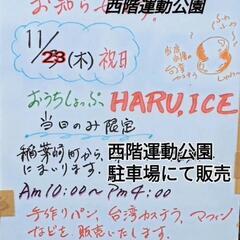 お知らせ
西階運動公園
11/23(木)祝日
ふわ
ふわ
台湾カステラ
おうちしょっぷ HARU,ICE
当日のみ限定
稲葉崎町から、西階運動公園
にまいります。駐車場にて販売
Am10:00〜Pm4:00
手作りパン、台湾カステラ、マフィン
などを販売いたします。